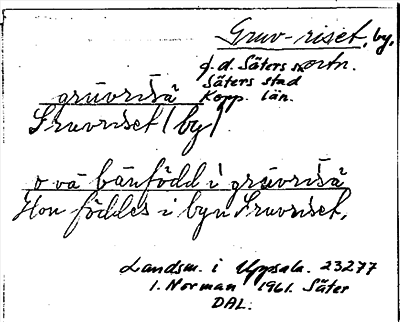 Gruv-riset, by,
f.d. Säters sn ortn.
Säters stad
Kopp. län.
grùvrisä̀
Gruvriset (by)
o va bànfödd i grùvrisä̀
Hon föddes i byn Gruvriset.
Landsm. i Uppsala. 23277
I. Norman 1961. Säter
DAL.